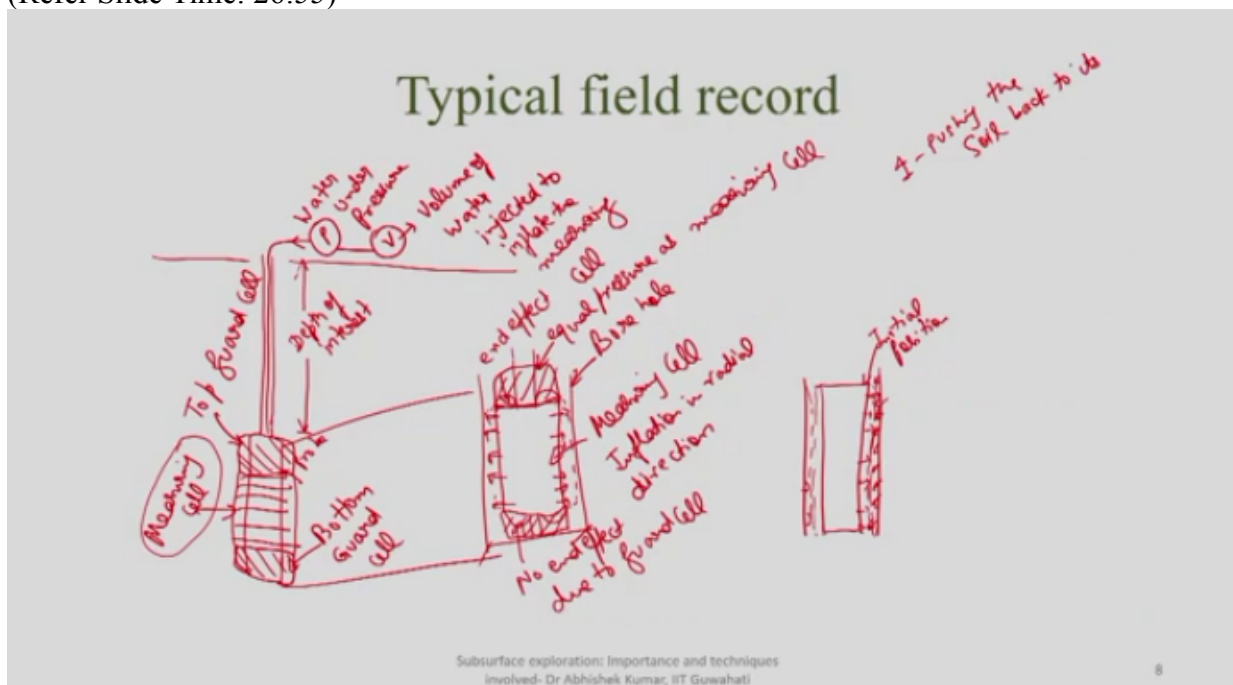 (Refer Slide Time: 20:55)
Typical field record
1 - Pushing the
Soil back to its
Water
under
Pressure
P
V
Volume of
water
injected to
inflate the
measuring
Cell
Depth of
interest
Top guard Cell
Measuring
Cell
Probe
Bottom
Guard
Cell
end effect
equal pressure as measuring Cell
Bore hole
Measuring Cell
Inflation in radial
direction
No end effect
due to guard Cell
Initial
Position
Subsurface exploration: Importance and techniques
involved- Dr Abhishek Kumar, IIT Guwahati
8